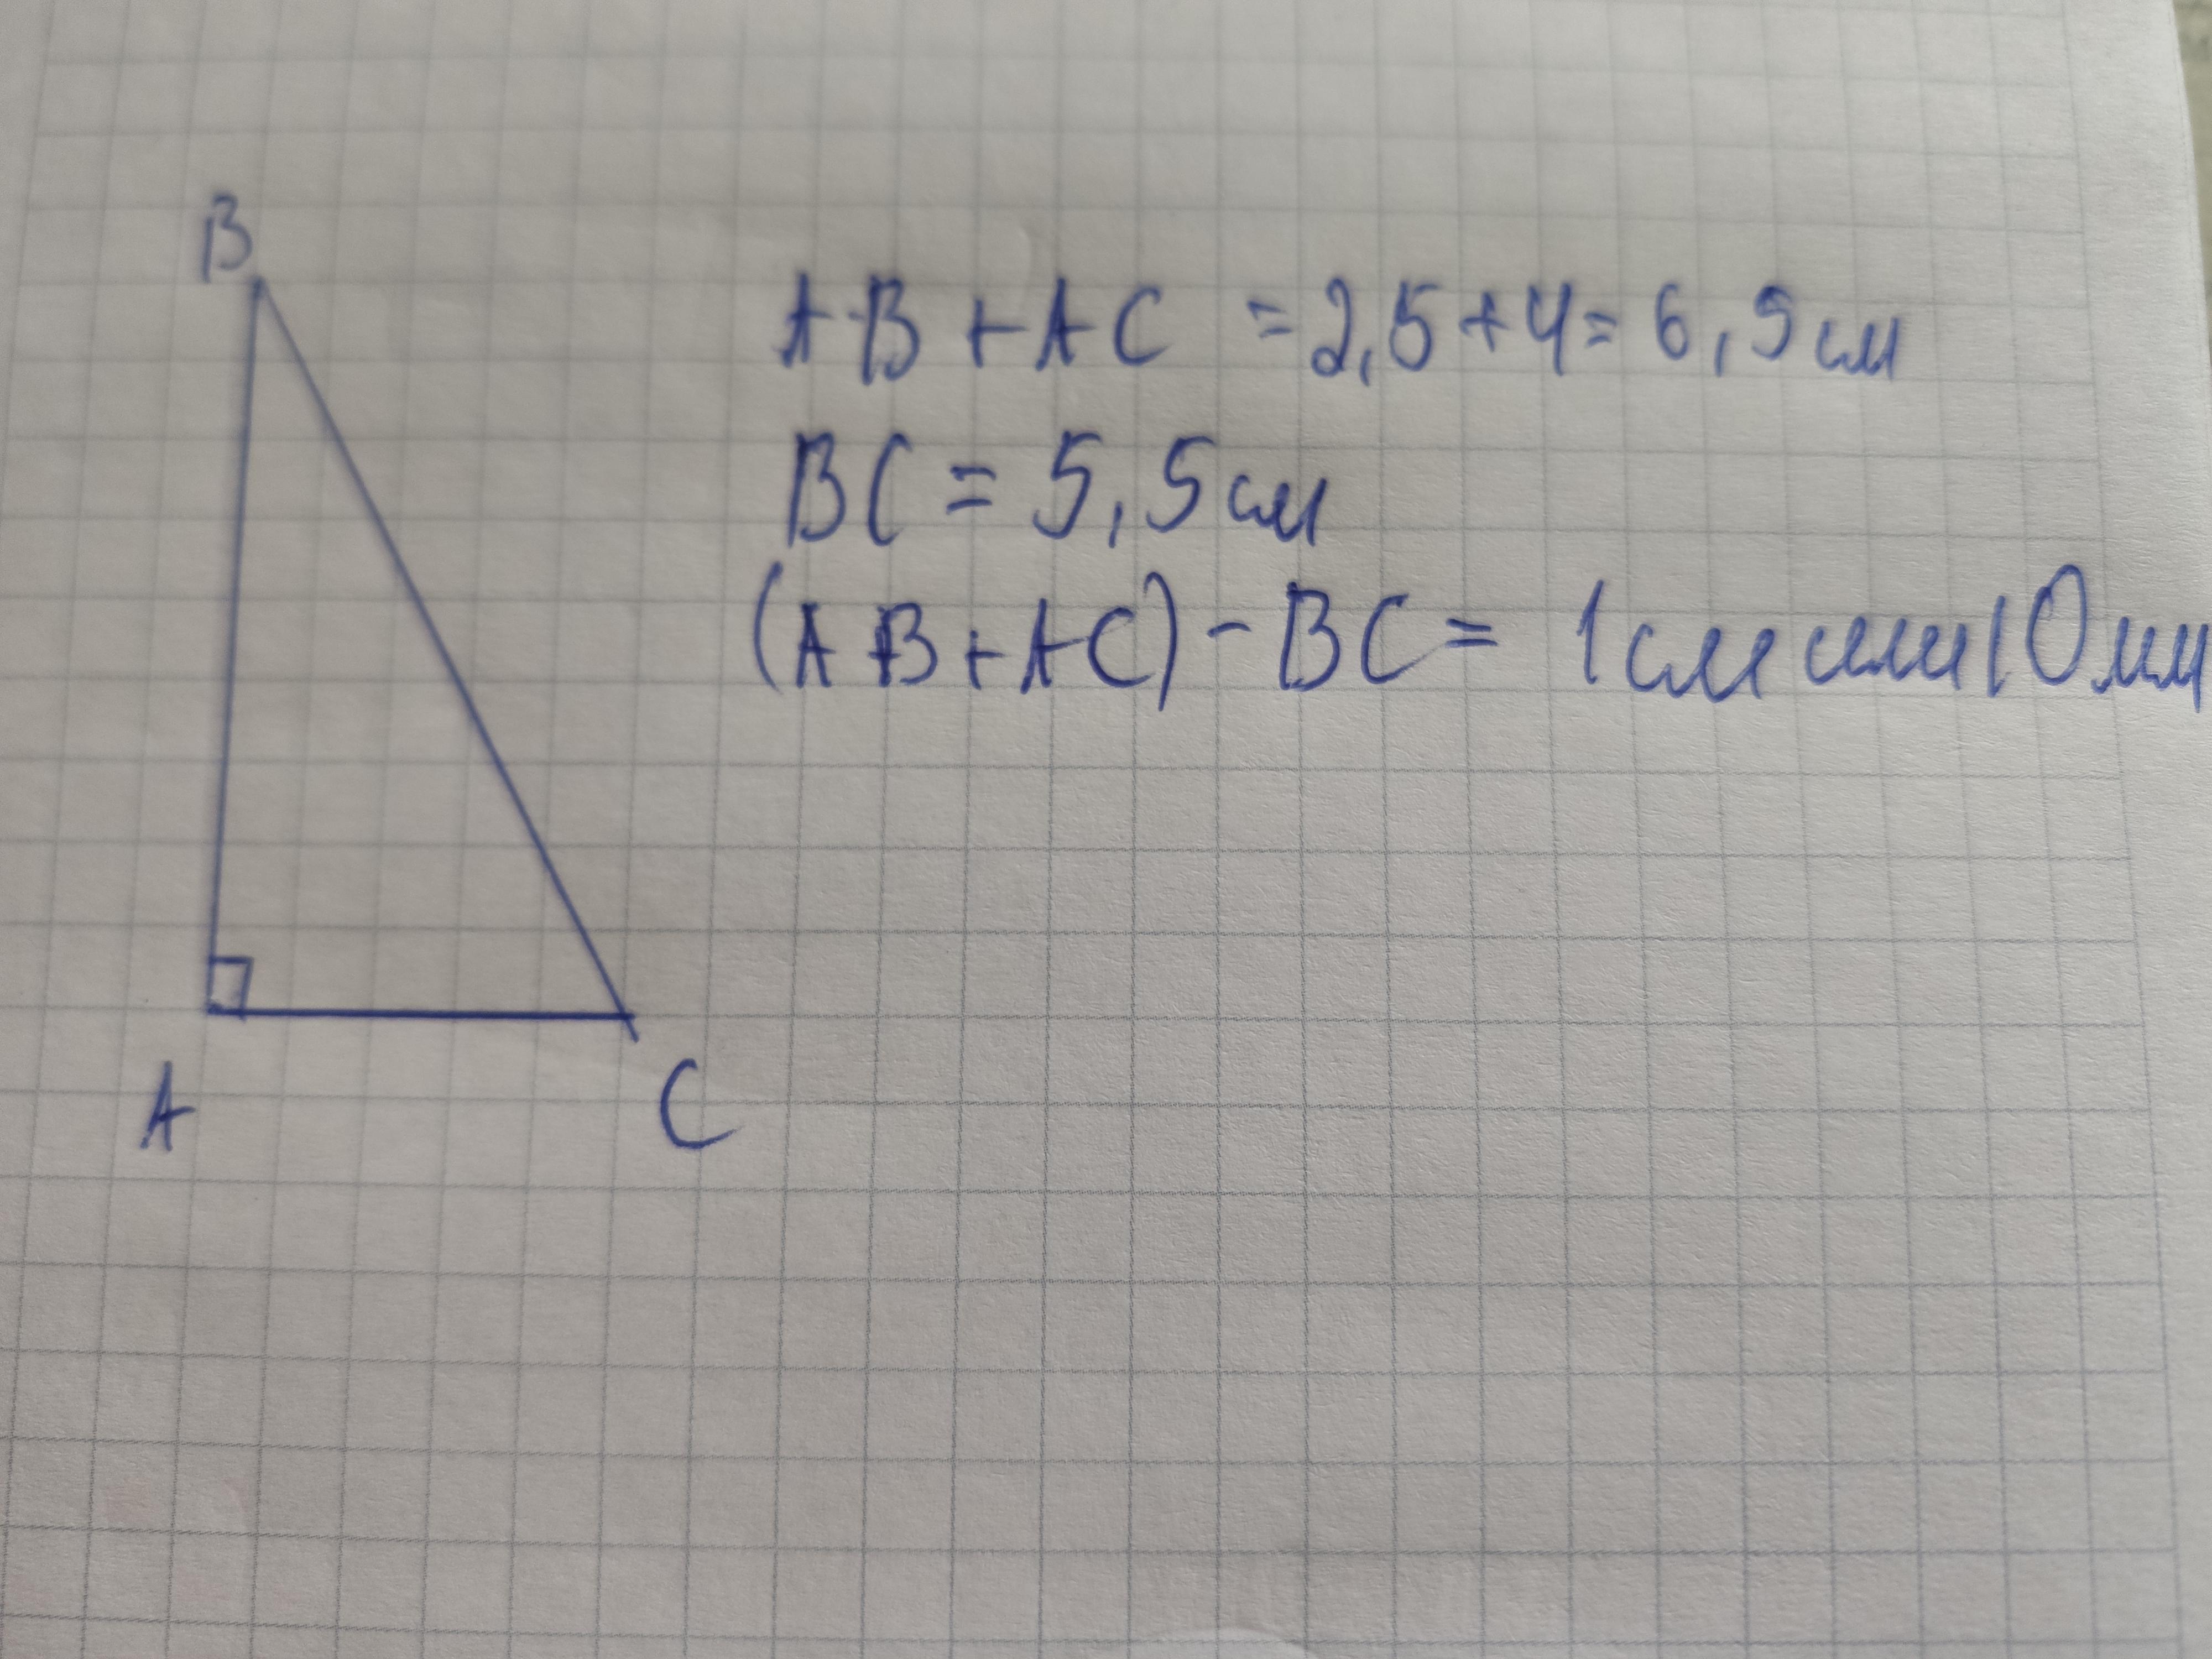 B
AB + AC = 2,5 + 4 = 6,5 см
BC = 5,5 см
(AB + AC) - BC = 1 см или 10 мм
A
C